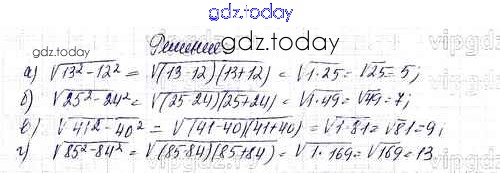 gdz.today
Решение
gdz.today
а) √13²-12² = √(13-12)(13+12) = √1·25 = √25 = 5;
б) √25²-24² = √(25-24)(25+24) = √1·49 = √49 = 7;
в) √41²-40² = √(41-40)(41+40) = √1·81 = √81 = 9;
г) √85²-84² = √(85-84)(85+84) = √1·169 = √169 = 13